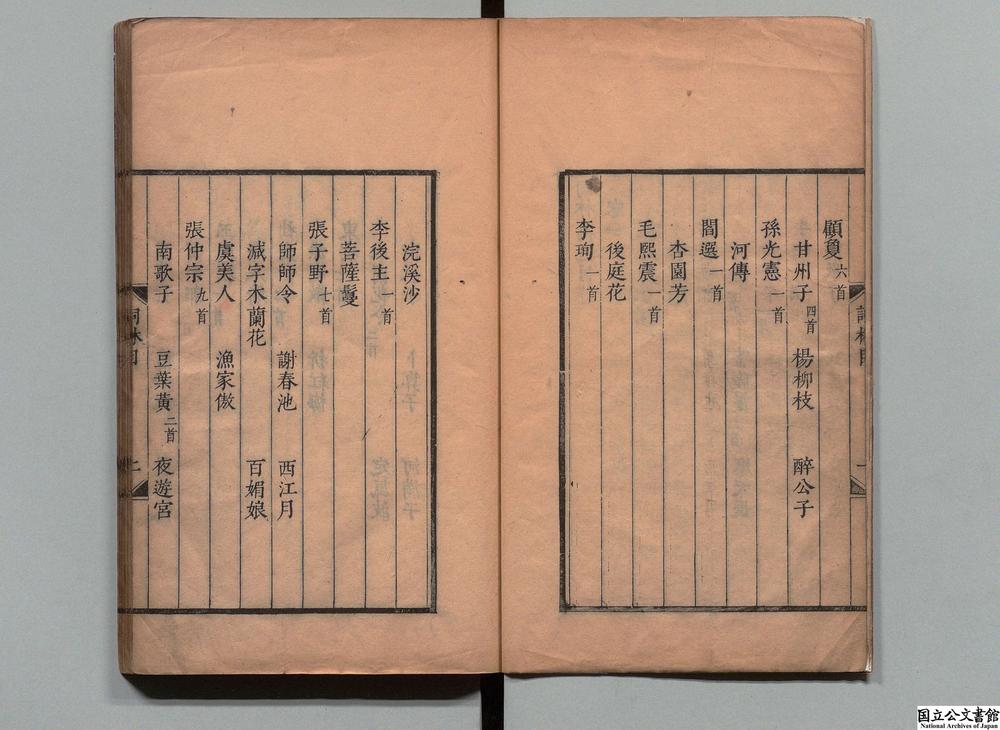 顧敻 六首
甘州子 四首 楊柳枝 醉公子
孫光憲 一首
河傳
閻選 一首
杏園芳
毛熙震 一首
後庭花
李珣 一首
浣溪沙
李後主 一首
菩薩鬘
張子野 七首
師師令 謝春池 西江月
減字木蘭花 百媚娘
虞美人 漁家傲
張仲宗 九首
南歌子 豆葉黃 二首 夜遊宮
国立公文書館
National Archives of Japan